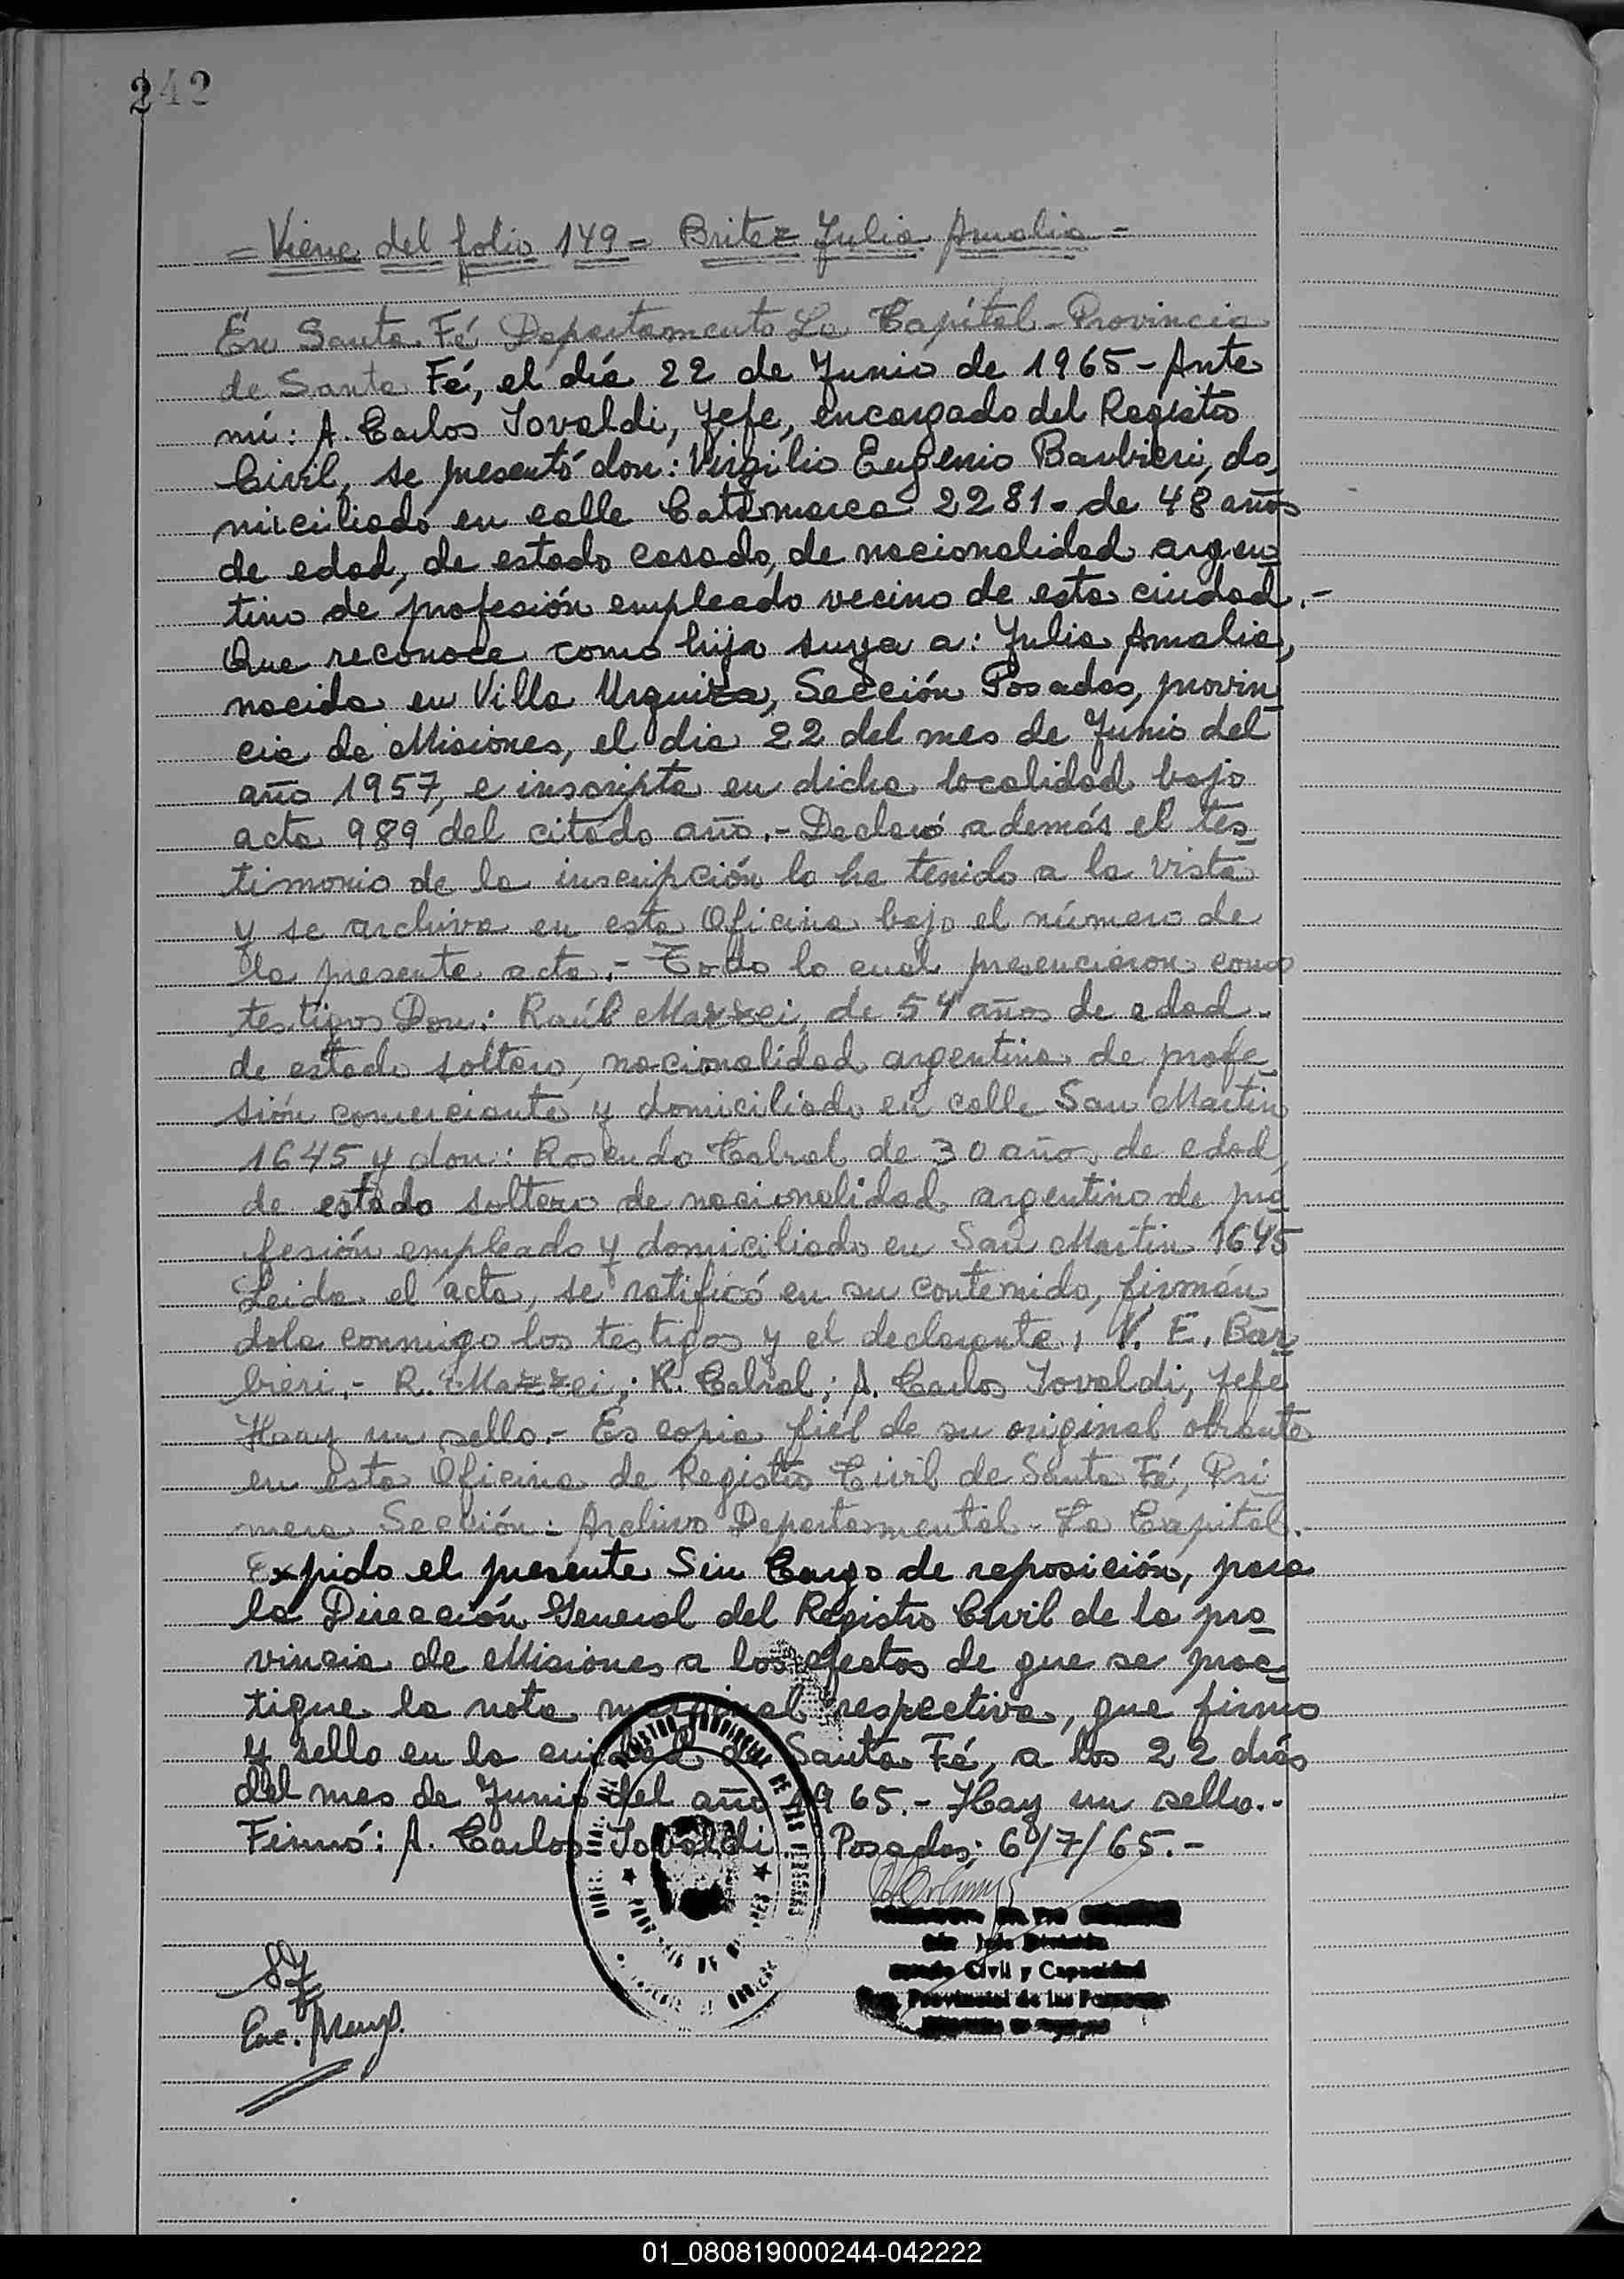 242
= Viene del folio 149 = Britez Julia Amalia -
En Santa Fé Departamento La Capital - Provincia
de Santa Fé, el día 22 de Junio de 1965 - Ante
mí: A. Carlos Tovaldi, Jefe, encargado del Registro
Civil, se presentó don: Virgilio Eugenio Barbieri, do,
miciliado en calle Catamarca 2281 - de 48 años
de edad, de estado casado, de nacionalidad argen
tino de profesión empleado vecino de esta ciudad.-
Que reconoce como hija suya a: Julia Amalia,
nacida en Villa Urquiza, Sección Posadas, provin
cia de Misiones, el dia 22 del mes de Junio del
año 1957, e inscripta en dicha localidad bajo
acta 989 del citado año.- Declaró además el tes
timonio de la inscripción lo ha tenido a la vista
y se archiva en esta Oficina bajo el número de
la presente acta.- Todo lo cual presenciaron como
testigos Don: Raúl Mazzei, de 54 años de edad.
de estado soltero, nacionalidad argentina de profe
sión comerciante y domiciliado en calle San Martin
1645 y don: Rosendo Cabral de 30 años de edad,
de estado soltero de nacionalidad argentino de pro
fesión empleado y domiciliado en San Martin 1645
Leida el acta, se ratificó en su contenido, firmán
dola conmigo los testigos y el declarante, V. E. Bar
bieri.- R. Mazzei; R. Cabral; A. Carlos Tovaldi, Jefe
Haay un sello.- Es copia fiel de su original obrante
en esta Oficina de Registro Civil de Santa Fé, Pri
mera Sección: Archivo Departamental - La Capital.-
Expido el presente Sin Cargo de reposición, para
la Dirección General del Registro Civil de la pro
vincia de Misiones a los efectos de que se prac
tique la nota marginal respectiva, que firmo
y sello en la ciudad de Santa Fé, a los 22 dias
del mes de Junio del año 1965.- Hay un sello.-
Firmó: A. Carlos Tovaldi Posadas; 6/7/65.-
Civil y Capacidad
Provincial de las
Enc.
01_080819000244-042222